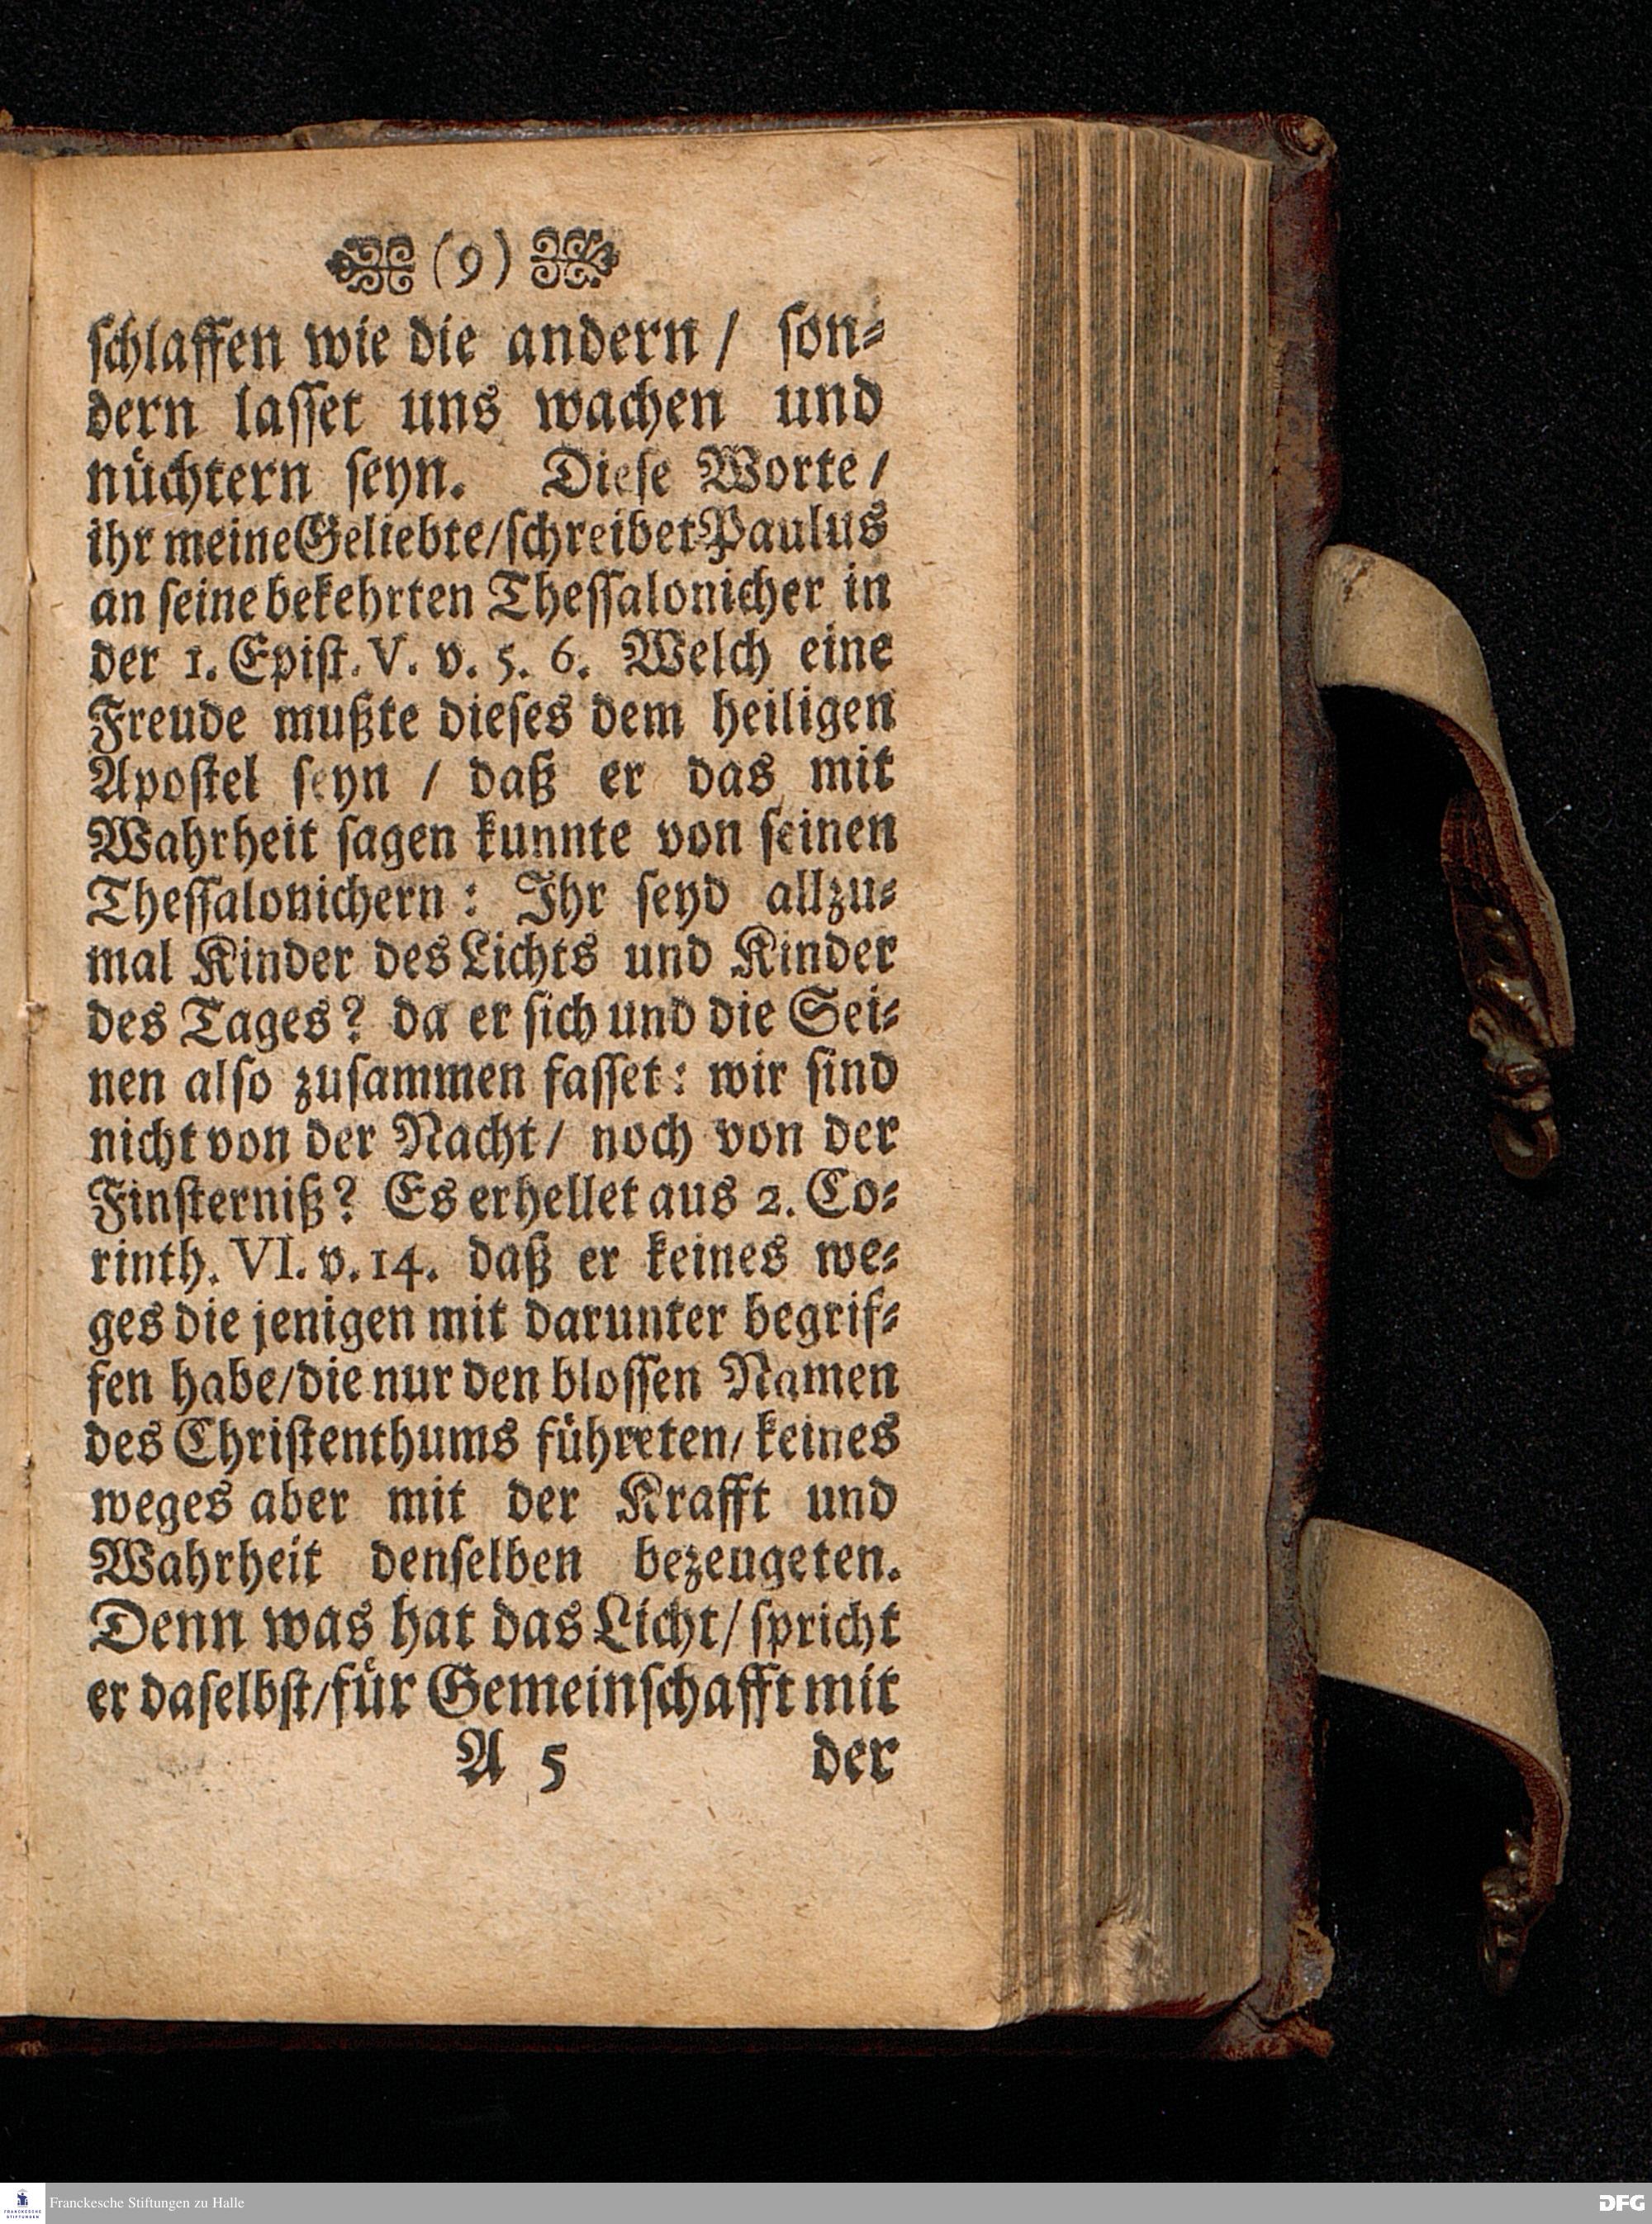 (9)
ſchlaffen wie die andern / ſon⸗
dern laſſet uns wachen und
nüchtern ſeyn. Dieſe Worte /
ihr meine Geliebte / ſchreibet Paulus
an ſeine bekehrten Theſſalonicher in
der 1. Epiſt. V. v. 5. 6. Welch eine
Freude mußte dieſes dem heiligen
Apoſtel ſeyn / daß er das mit
Wahrheit ſagen kunnte von ſeinen
Theſſalonichern: Ihr ſeyd allzu⸗
mal Kinder des Lichts und Kinder
des Tages? da er ſich und die Sei⸗
nen alſo zuſammen faſſet: wir ſind
nicht von der Nacht / noch von der
Finſterniß? Es erhellet aus 2. Co⸗
rinth. VI. v. 14. daß er keines we⸗
ges die jenigen mit darunter begrif⸗
fen habe / die nur den bloſſen Namen
des Chriſtenthums führeten / keines
weges aber mit der Krafft und
Wahrheit denſelben bezeugeten.
Denn was hat das Licht / ſpricht
er daſelbſt / für Gemeinſchafft mit
A 5 der
Franckesche Stiftungen zu Halle
DFG